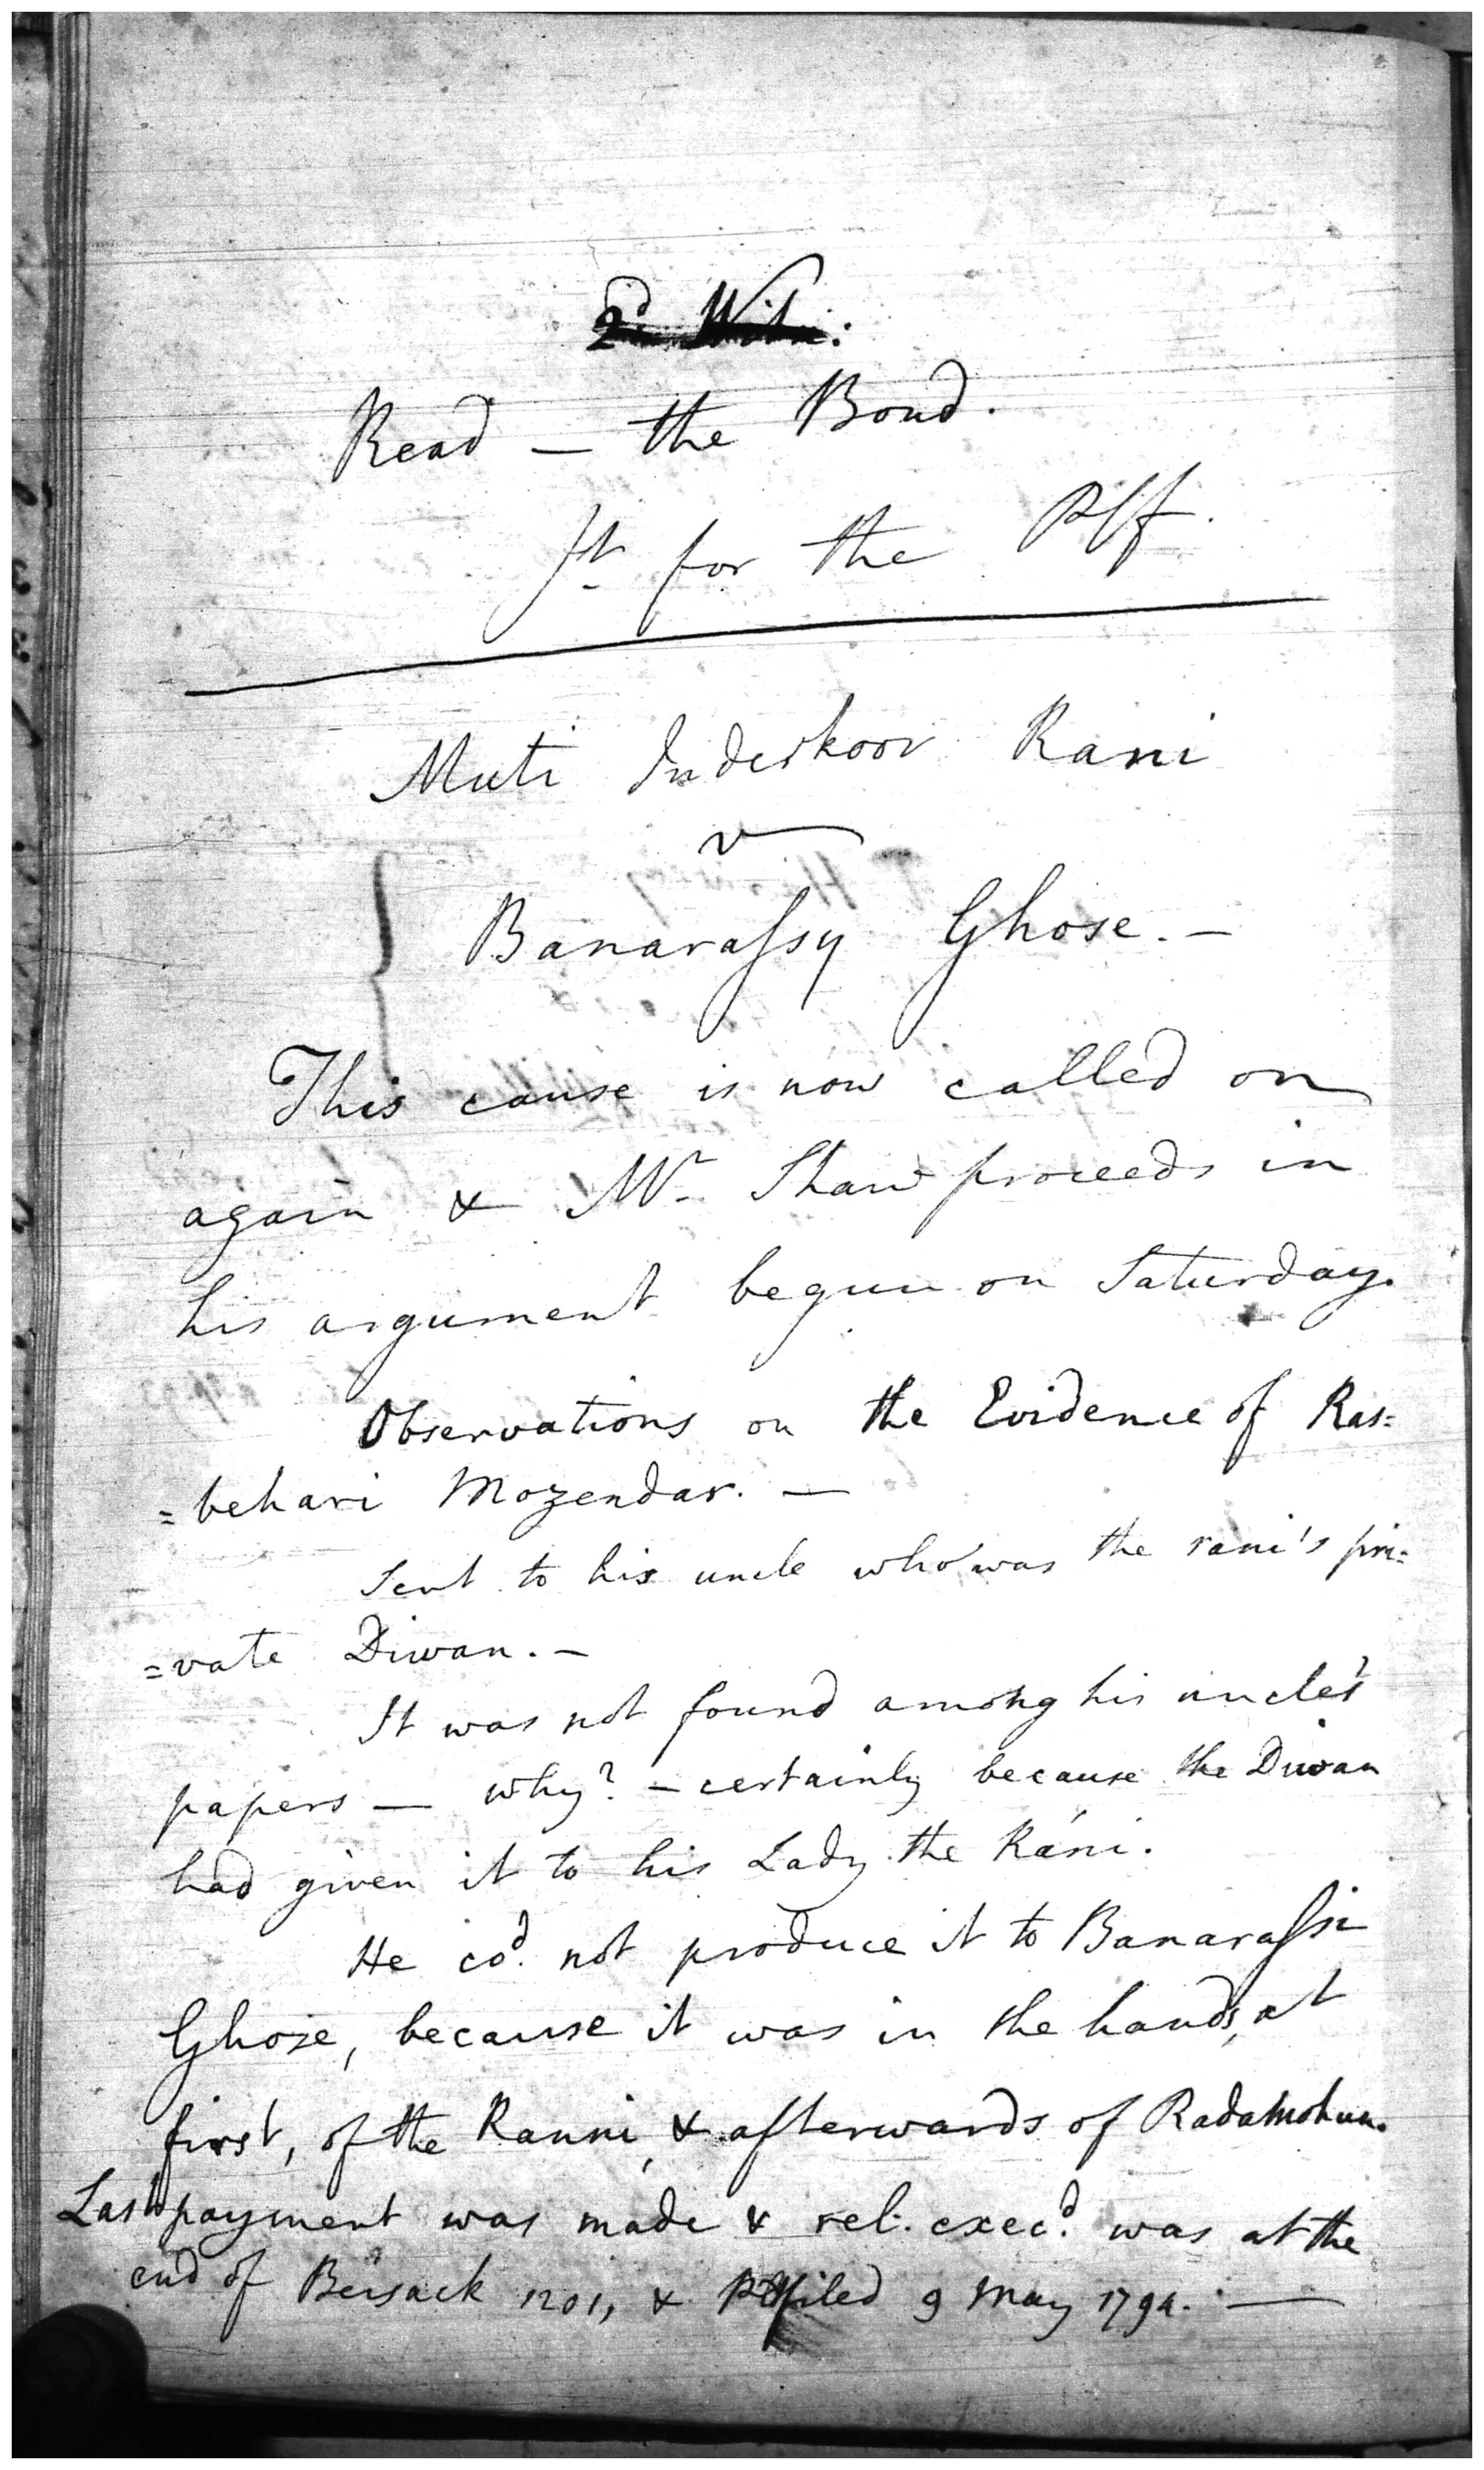 2d. Witn:
Read — the Bond.
Jt for the Plff.
Muti Inderkoor Rani
v
Banarassy Ghose. —
This cause is now called on
again & Mr. Shaw proceeds in
his argument begun on Saturday.
Observations on the Evidence of Ras=
=behari Mozendar. —
Sent to his uncle who was the rani's pri=
=vate Diwan. —
It was not found among his uncle's
papers — why? — certainly because the Diwan
had given it to his Lady the Ráni.
He cod. not produce it to Banarassi
Ghose, because it was in the hands, at
first, of the Ranni, & afterwards of Radamohun.
Last payment was made & rel. execd. was at the
end of Beisack 1201, & filed 9 May 1794. —